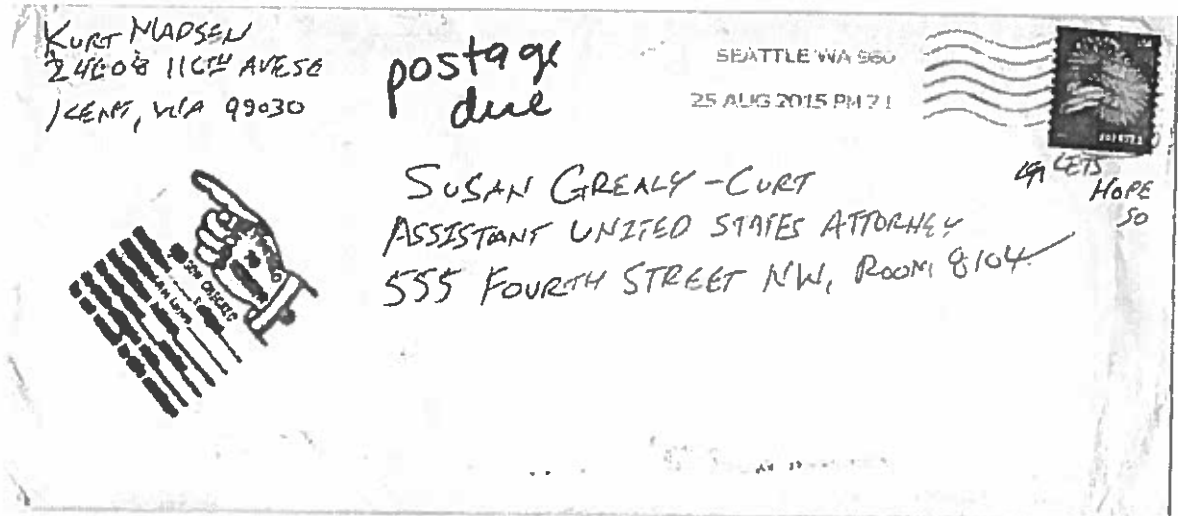 KURT MADSEN
24808 116TH AVE SE
KENT, WA 99030
postage
due
SEATTLE WA 980
25 AUG 2015 PM 2 L
SUSAN GREALY-CURT
ASSISTANT UNITED STATES ATTORNEY
555 FOURTH STREET NW, ROOM 8104
LETS
HOPE
SO
FOREVER